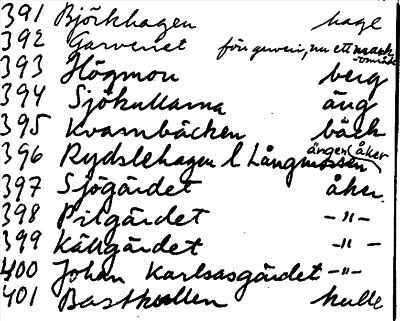 391 Björkhagen hage
392 Garveriet förr garveri, nu ett markområde
393 Högmon berg
394 Sjökullarna äng
395 Kvarnbäcken bäck
396 Rydslehagen l. Långmossen ängen åker
397 Sjögärdet åker
398 Pilgärdet -"-
399 Källgärdet -"-
400 Johan Karlsasgärdet -"-
401 Bastkullen kulle